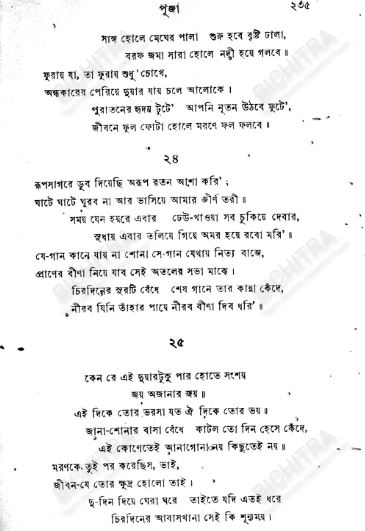 পূজা
২৩৫
সাঙ্গ হোলে মেঘের পালা শুরু হবে বৃষ্টি ঢালা,
বরফ জমা সারা হোলে নদী হয়ে গলবে॥
ফুরায় যা, তা ফুরায় শুধু চোখে,
অন্ধকারের পেরিয়ে দুয়ার যায় চলে আলোকে।
পুরাতনের হৃদয় টুটে' আপনি নূতন উঠবে ফুটে',
জীবনে ফুল ফোটা হোলে মরণে ফল ফলবে॥
২৪
রূপসাগরে ডুব দিয়েছি অরূপ রতন আশা করি';
ঘাটে ঘাটে ঘুরব না আর ভাসিয়ে আমার জীর্ণ তরী॥
সময় যেন হয়রে এবার ঢেউ-খাওয়া সব চুকিয়ে দেবার,
সুধায় এবার তলিয়ে গিয়ে অমর হয়ে রবো মরি'॥
যে-গান কানে যায় না শোনা সে-গান যেথায় নিত্য বাজে,
প্রাণের বীণা নিয়ে যাব সেই অতলের সভা মাঝে।
চিরদিনের সুরটি বেঁধে শেষ গানে তার কান্না কেঁদে,
নীরব যিনি তাঁহার পায়ে নীরব বীণা দিব ধরি'॥
২৫
কেন রে এই দুয়ারটুকু পার হোতে সংশয়
জয় অজানার জয়॥
এই দিকে তোর ভরসা যত ঐ দিকে তোর ভয়॥
জানা-শোনার বাসা বেঁধে কাটল তো দিন হেসে কেঁদে,
এই কোণেতেই আনাগোনা নয় কিছুতেই নয়॥
মরণকে তুই পর করেছিস, ভাই,
জীবন-যে তোর ক্ষুদ্র হোলো তাই।
দু-দিন দিয়ে ঘেরা ঘরে তাইতে যদি এতই ধরে
চিরদিনের আবাসখানা সেই কি শূন্যময়।
BICHITRA